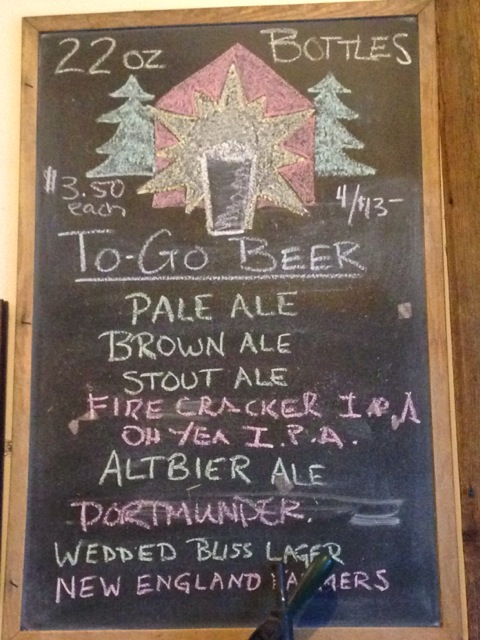 22 oz BOTTLES
$3.50 each
4/$13-
TO-GO BEER
PALE ALE
BROWN ALE
STOUT ALE
FIRE CRACKER I.P.A
OH YEA I.P.A.
ALTBIER ALE
DORTMUNDER.
WEDDED BLISS LAGER
NEW ENGLAND